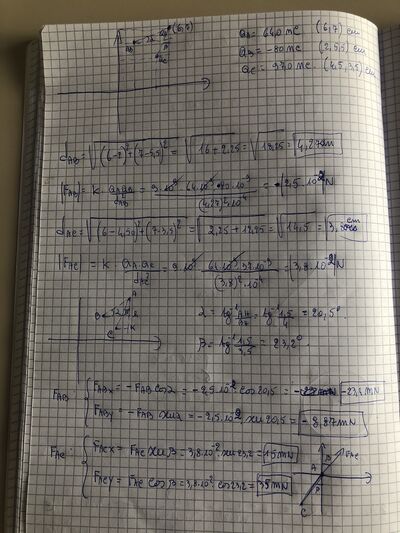 (6,7)
AB
A
AC
qA= 640 nC (6,7) cm
qB= -80 nC (2,5,5) cm
qC= 370 nC (4,5,3,5) cm
dAB= √(6-2)²+(7-5,5)² = √16+2,25 = √18,25 = 4,27cm
|FAB| = k qAqB/dAB² = = 2,5.10⁻² N
(4,27)².10⁻⁴
dAC= √(6-4,5)²+(7-3,5)² = √2,25+12,25 = √14,5 = 3,8 cm
|FAC| = k qAqC/dAC² = 9.10⁹ = 3,8.10⁻² N
(3,8)².10⁻⁴
A
B
C
α = tg⁻¹ = tg⁻¹ 1,5/4 = 20,5°
β = tg⁻¹ 1,5/3,5 = 23,2°
FAB: FABX = -FAB cosα = -2,5.10⁻² cos20,5 = -23,4 mN
FABY = -FAB sinα = -2,5.10⁻² sin 20,5 = -8,87mN
FAC: FACX = FAC sinβ = 3,8.10⁻² sin 23,2 = 15mN
FACY = FAC cosβ = 3,8.10⁻² cos23,2 = 35mN
FAC
A
β
C